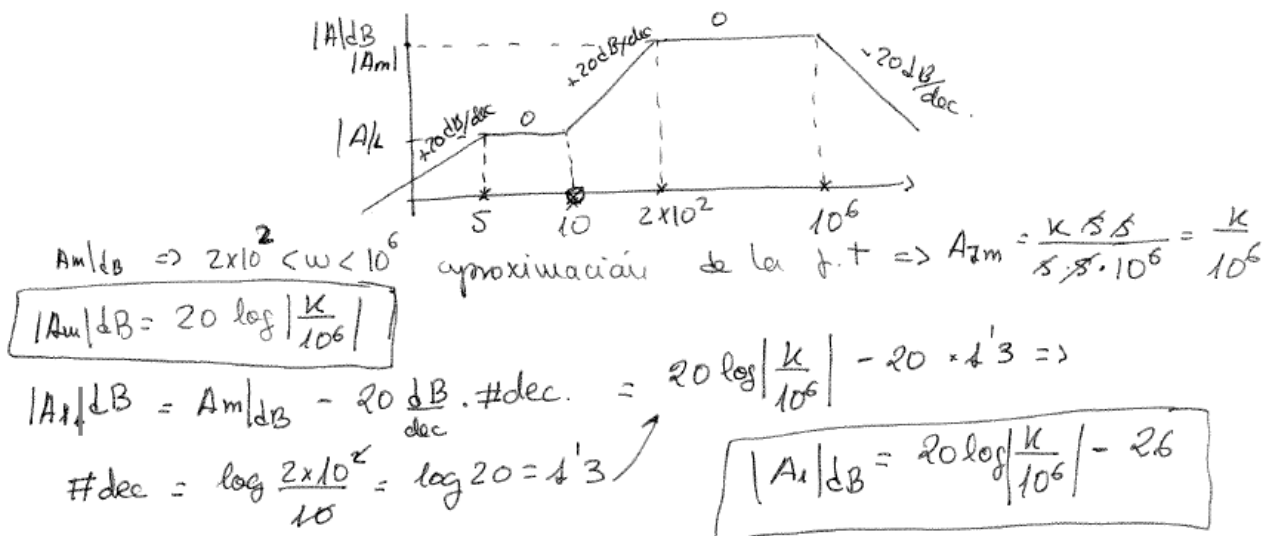 |A|dB
|Am|
|A|1
+20dB/dec
0
+20dB/dec
0
-20dB/dec.
5
10
2x10²
10⁶
Am|dB => 2x10² < w < 10⁶ aproximación de la f.t => A_Tm = K s s / s·s·10⁶ = K / 10⁶
|Am|dB = 20 log |K/10⁶|
|A1|dB = Am|dB - 20 dB/dec · #dec. = 20 log |K/10⁶| - 20 * 1'3 =>
#dec = log 2x10²/10 = log 20 = 1'3
|A1|dB = 20 log |K/10⁶| - 26